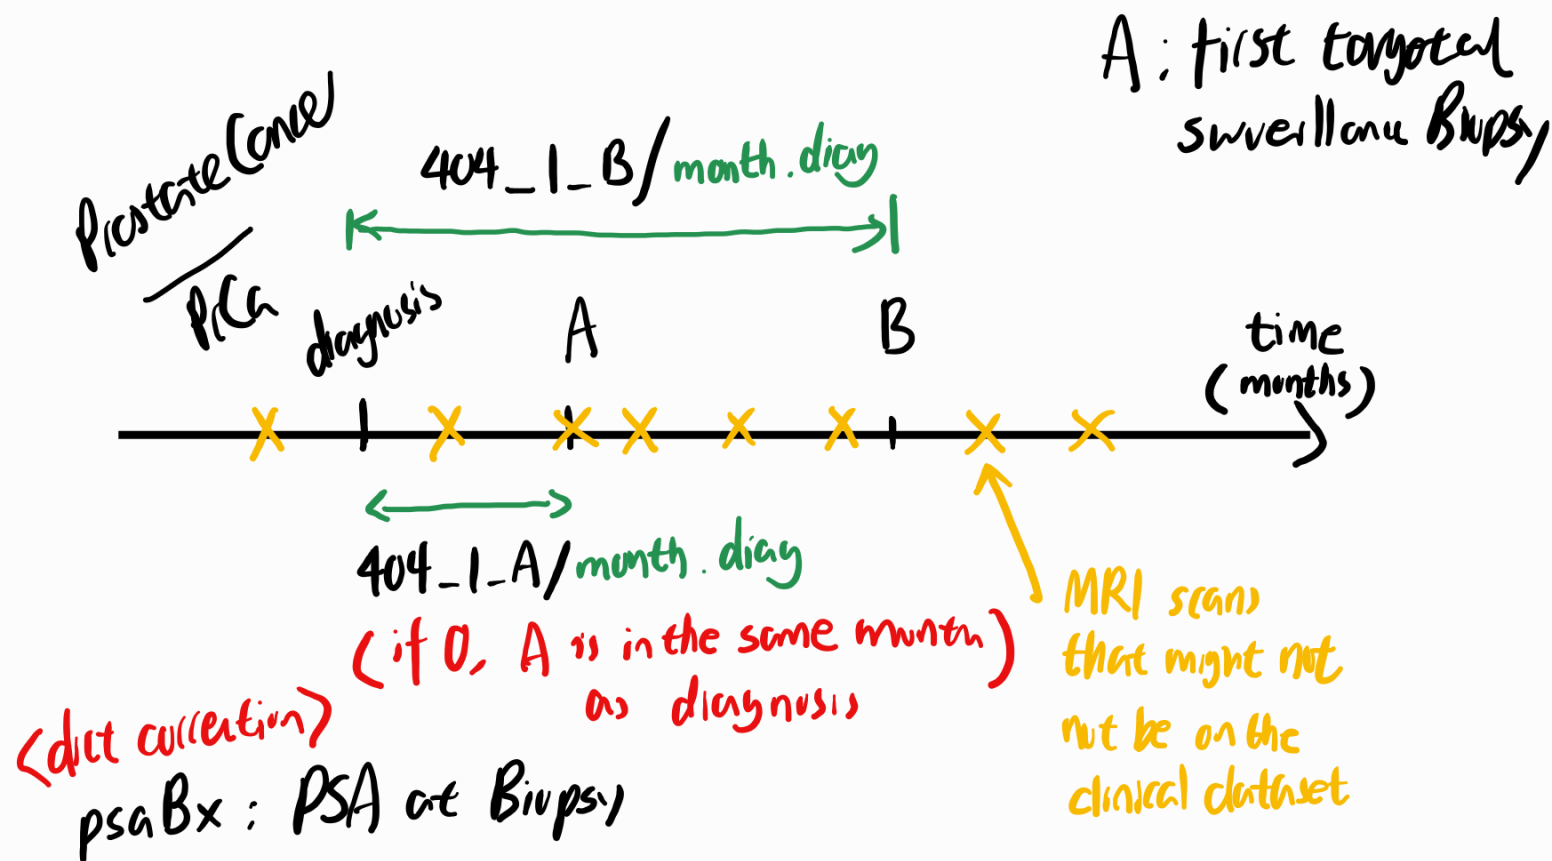 A : first targeted
surveillance Biopsy
Prostate Cancer
/ PrCa
404_1_B/month.diag
diagnosis
A
B
time
(months)
404_1_A/month.diag
(if 0, A is in the same month
as diagnosis)
MRI scans
that might not
not be on the
clinical dataset
<dict correction>
psaBx : PSA at Biopsy